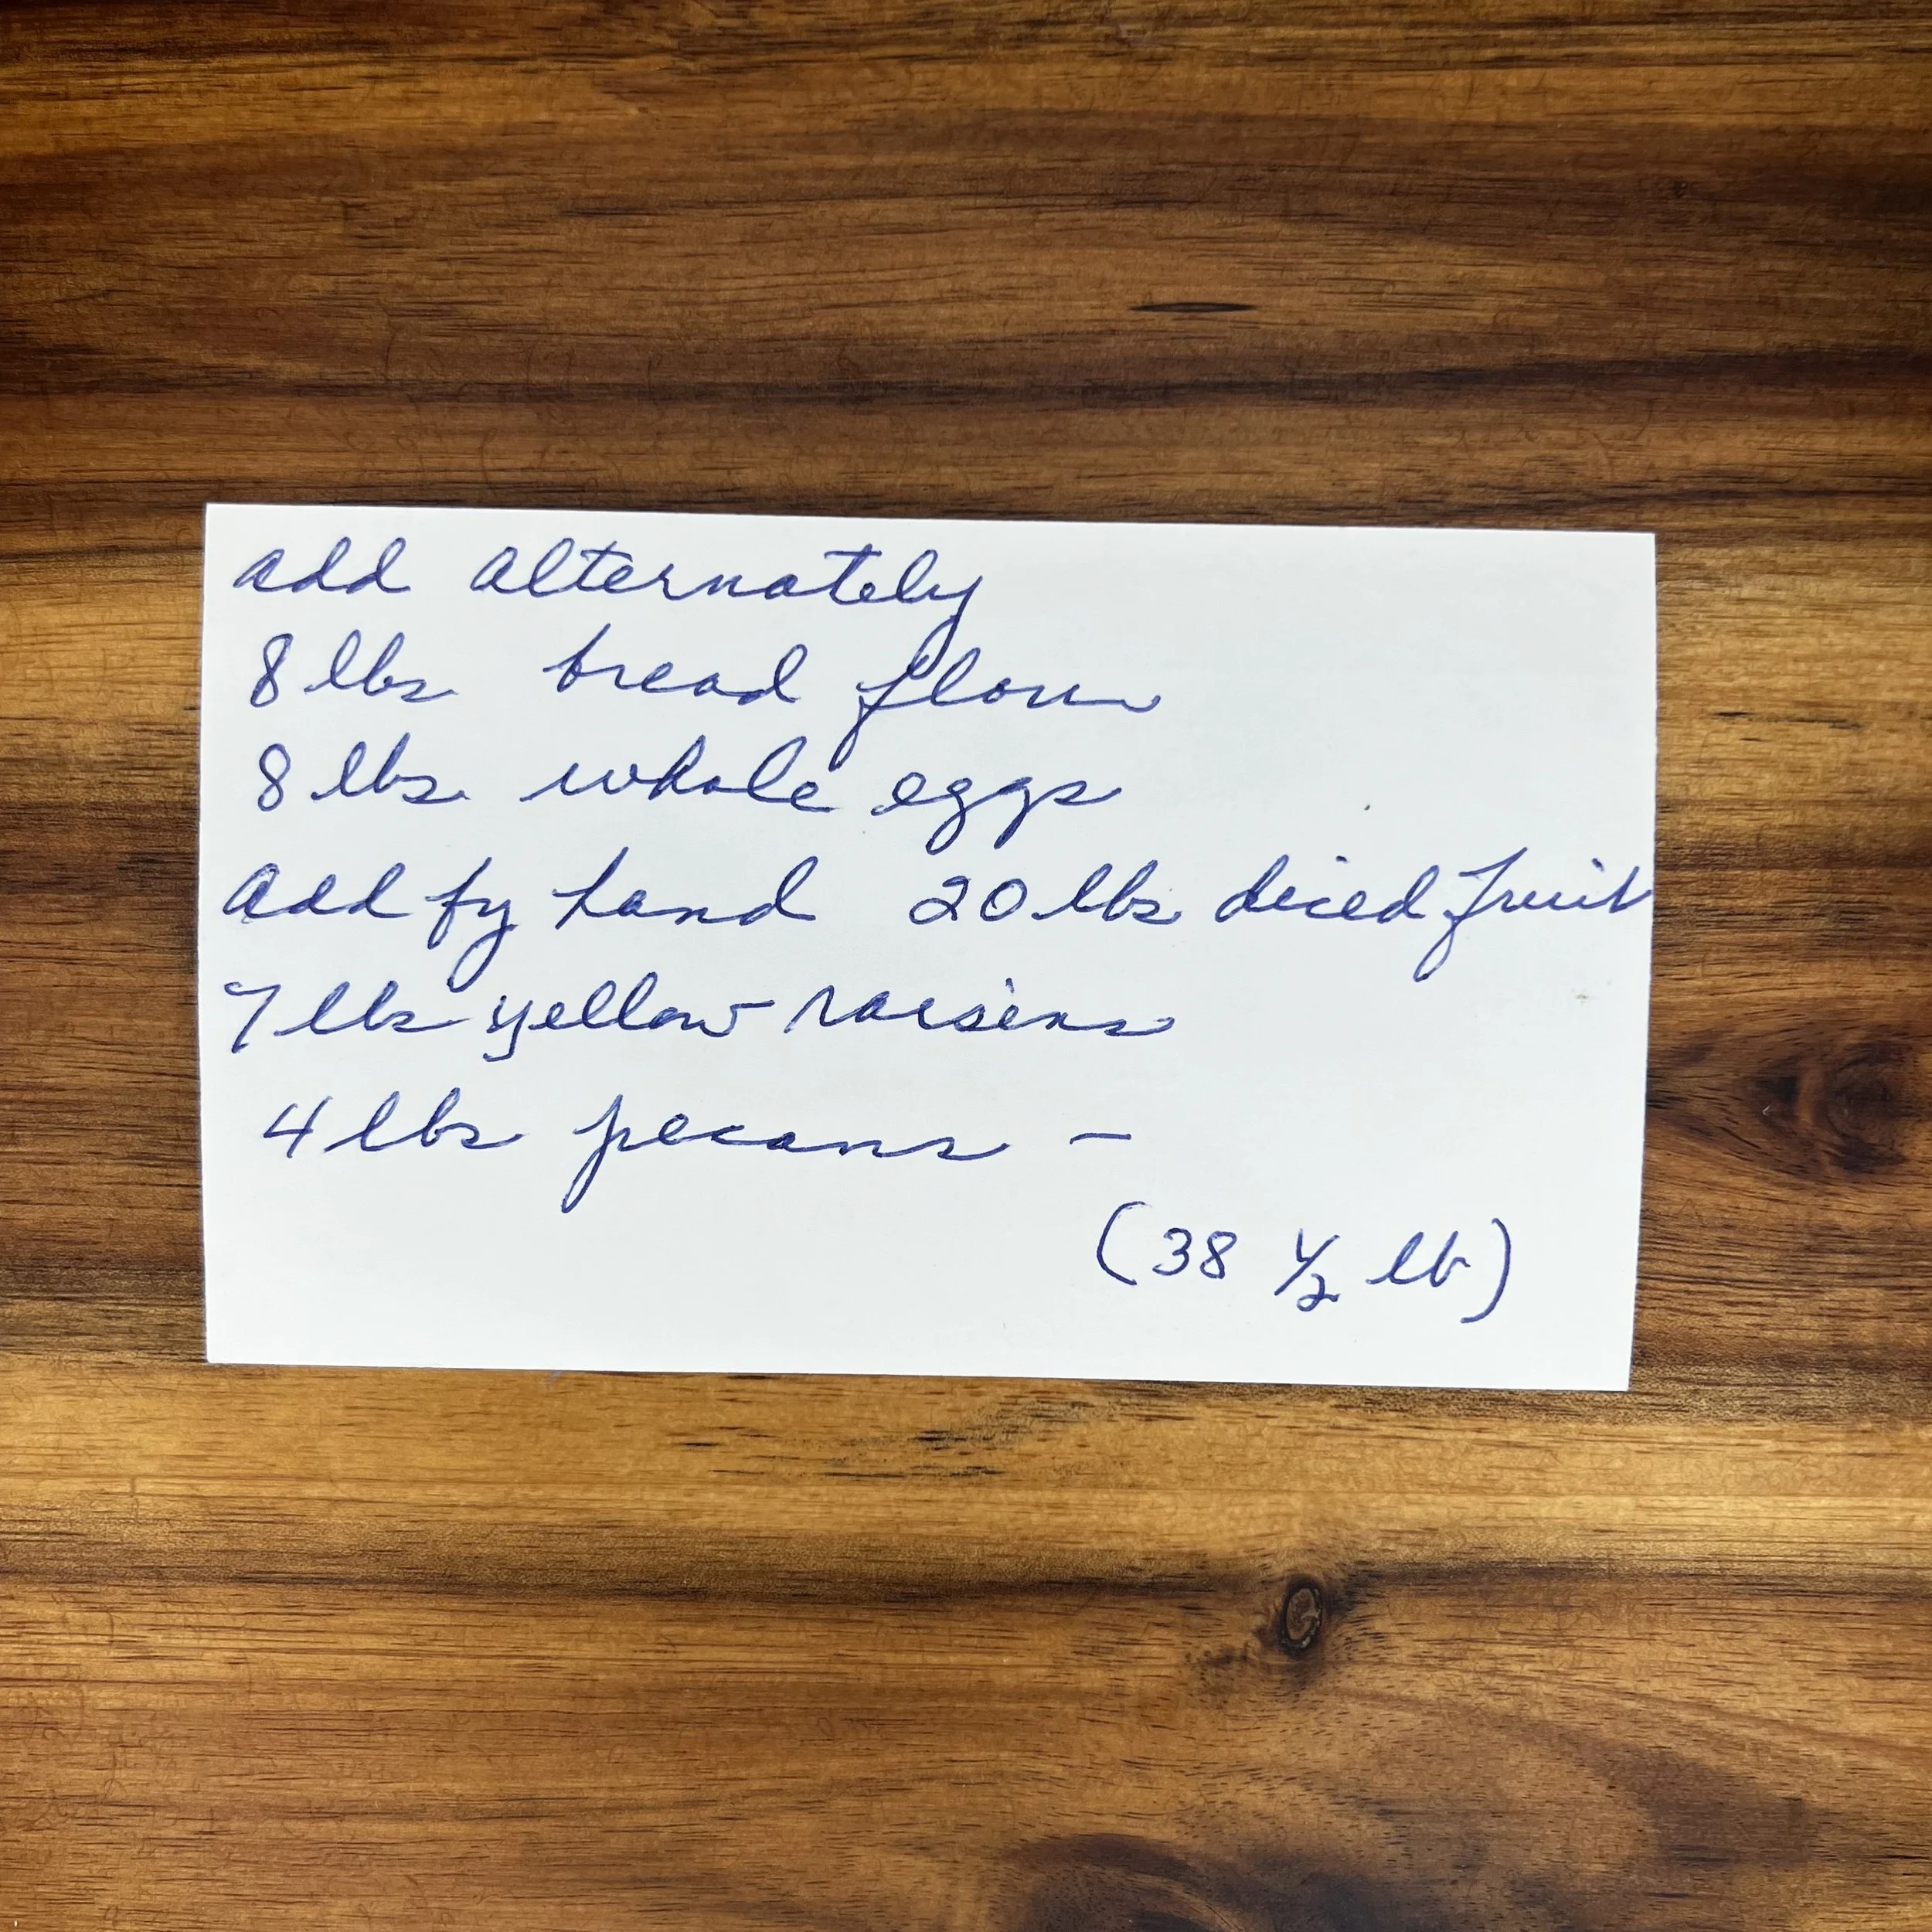 add alternately
8 lbs bread flour
8 lbs. whole eggs
Add by hand 20 lbs diced fruit
7 lbs yellow raisins
4 lbs pecans –
(38 1/2 lb)